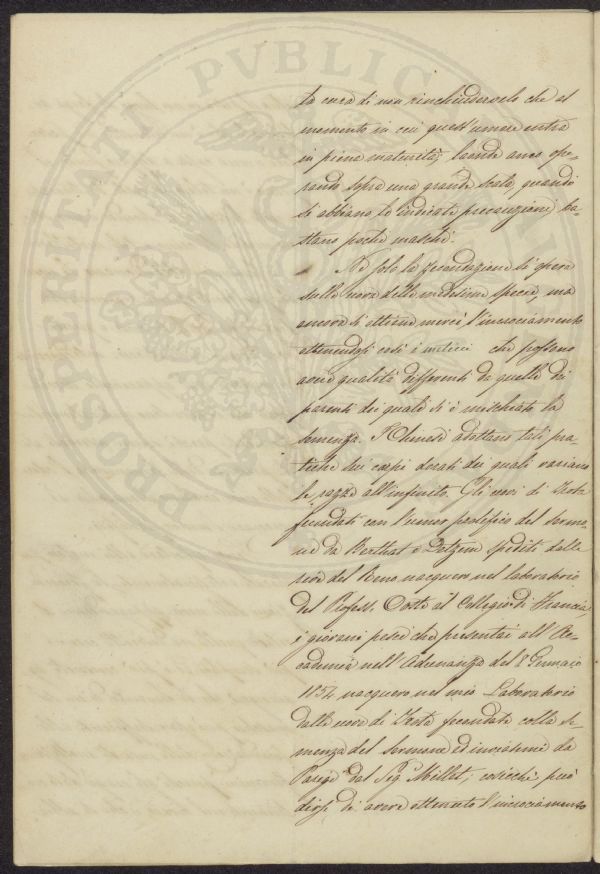 PROSPERITATI PVBLICAE
ta cura di non rinchiudervelo che al
momento in cui quest'umore entra
in piena maturità, laonde anco ope-
rando sopra una grande scala, quando
si abbiano le indicate precauzioni ba-
stano pochi maschi.
Nè solo la fecondazione si opera
sulle uova della medesima specie, ma
ancora si ottiene mercè l'incrociamento
ottenendosi così i meticci che possono
avere qualità differenti da quelle dei
parenti dei quali si è mischiato la
semenza. I Chinesi adottano tali pra-
tiche sui carpi dorati dei quali variano
le razze all'infinito. Gli uovi di Trota
fecondati con l'umor prolifico del Sermo-
ne da Berthot e Detzem spediti dalle
rive del Reno nacquero nel laboratorio
del Profess. Coste al Collegio di Francia,
i giovani pesci che presentai all'Ac-
cademia nell'Adunanza del 8 Gennaio
1854 nacquero nel mio Laboratorio
dalle uova di Trota fecondate colla se-
menza del Sermone ed inviatemi da
Parigi dal Sig. Millet; cosicchè può
dirsi di avere ottenuto l'incrociamento